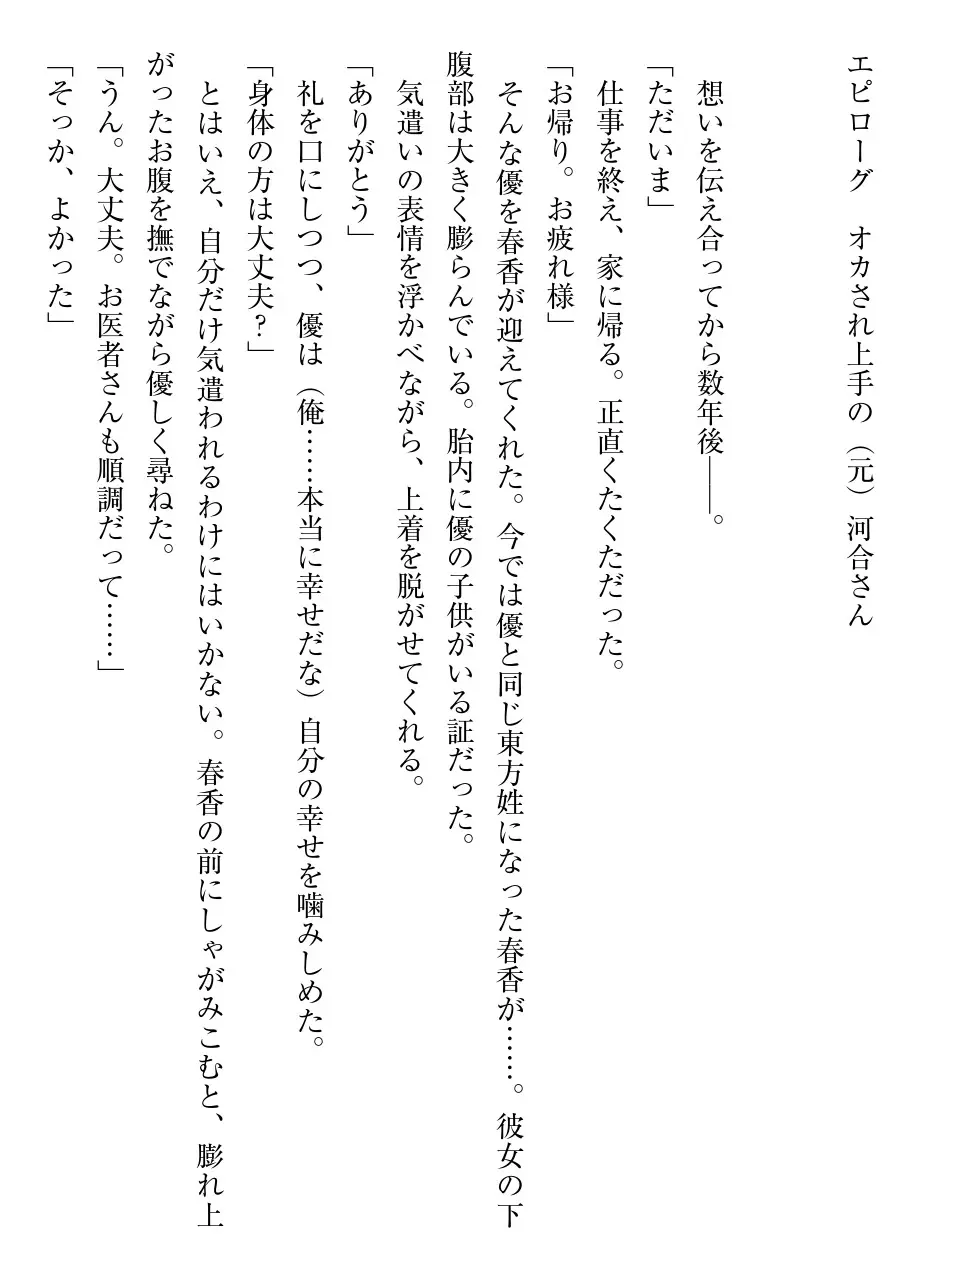 エピローグ　オカされ上手の（元）河合さん
想いを伝え合ってから数年後――。
「ただいま」
仕事を終え、家に帰る。正直くたくただった。
「お帰り。お疲れ様」
そんな優を春香が迎えてくれた。今では優と同じ東方姓になった春香が……。彼女の下
腹部は大きく膨らんでいる。胎内に優の子供がいる証だった。
気遣いの表情を浮かべながら、上着を脱がせてくれる。
「ありがとう」
礼を口にしつつ、優は（俺……本当に幸せだな）自分の幸せを噛みしめた。
「身体の方は大丈夫？」
とはいえ、自分だけ気遣われるわけにはいかない。春香の前にしゃがみこむと、膨れ上
がったお腹を撫でながら優しく尋ねた。
「うん。大丈夫。お医者さんも順調だって……」
「そっか、よかった」